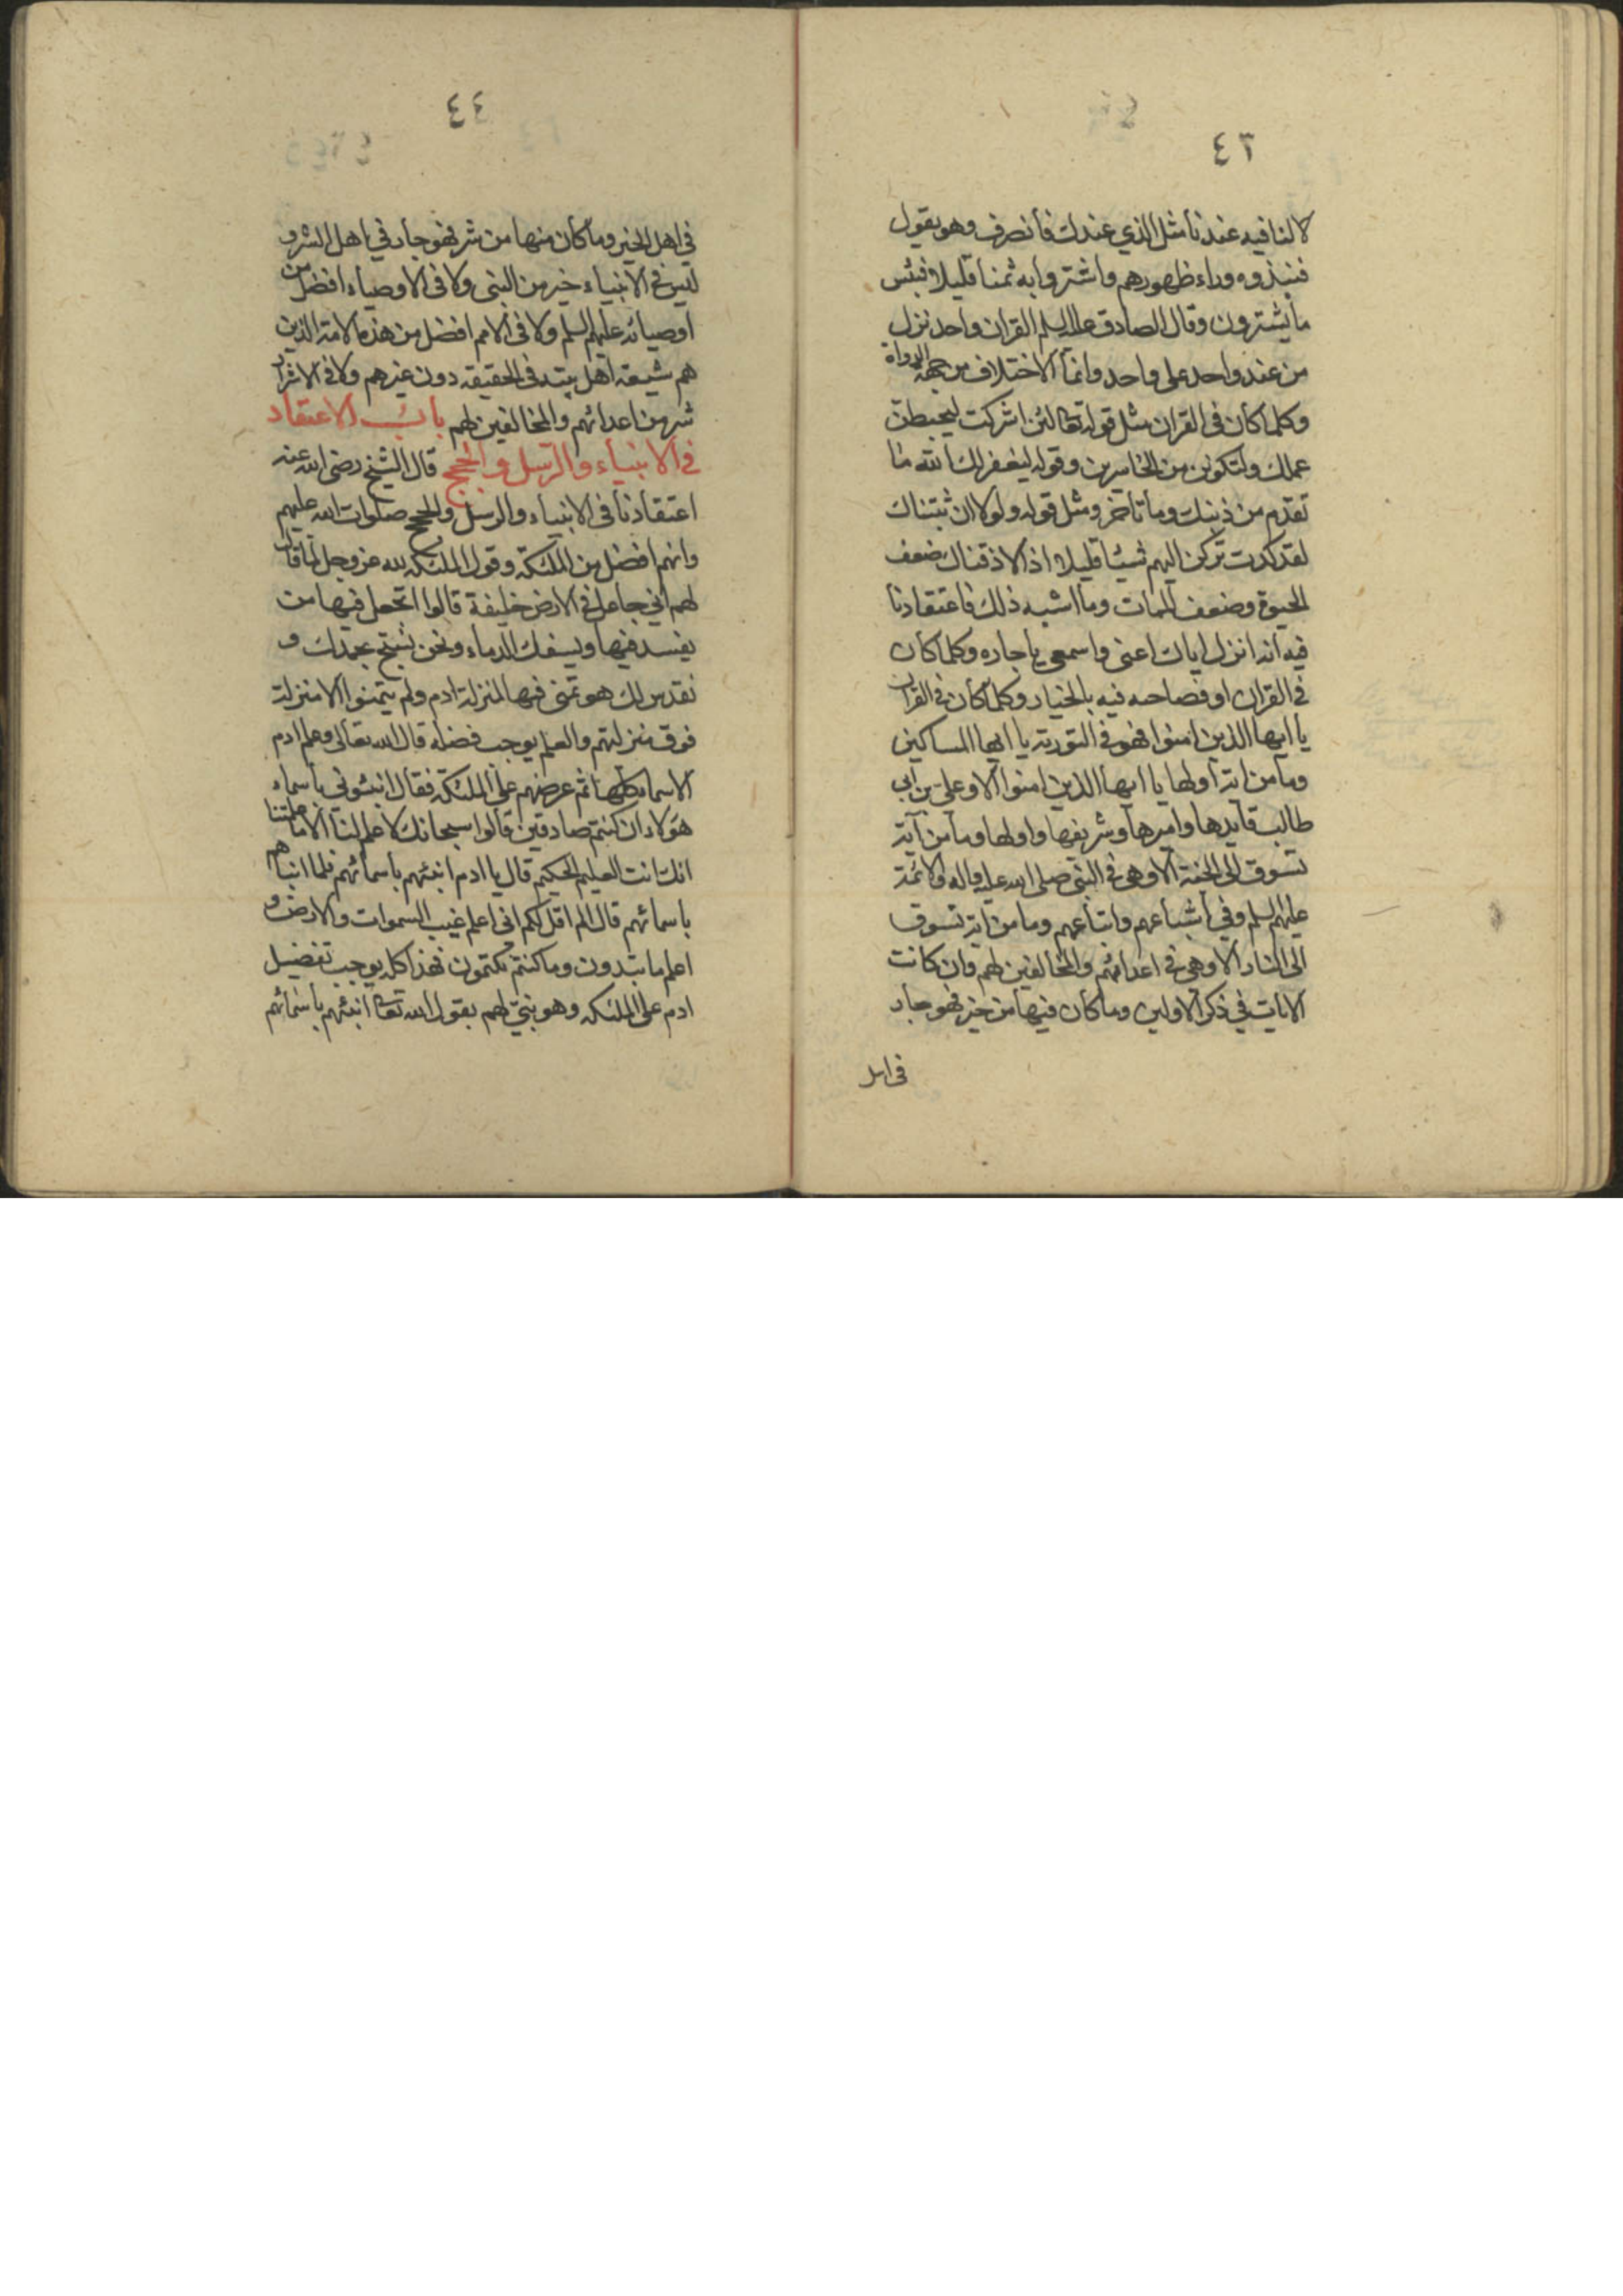 ٤٣
لا لنا فيه عندنا مثل الذي عندك فانصرف وهو يقول
فنبذوه وراء ظهورهم واشتروا به ثمنا قليلا فبئس
ما يشترون وقال الصادق عليه السلم القران واحد نزل
من عند واحد على واحد وانما الاختلاف من جهة الرواة
وكلما كان فى القران مثل قوله تعالى لئن اشركت ليحبطن
عملك ولتكونن من الخاسرين وقوله ليغفر لك الله ما
تقدم من ذنبك وما تاخر ومثل قوله ولولا ان ثبتناك
لقد كدت تركن اليهم شيئا قليلا اذا لاذقناك ضعف
الحيوة وضعف الممات وما اشبه ذلك فاعتقادنا
فيه انه انزل اياك اعنى واسمعى يا جاره وكلما كان
فى القران او فصاحبه فيه بالخيار وكلما كان فى القران
يا ايها الذين امنوا فهو فى التورية يا ايها المساكين
وما من اية اولها يا ايها الذين امنوا الا وعلى بن ابى
طالب قايدها واميرها وشريفها واولها وما من آية
تسوق الى الجنة الا وهى فى النبى صلى الله عليه واله والائمة
عليهم السلم وفى اشياعهم واتباعهم وما من اية تسوق
الى النار الا وهى فى اعدائهم والمخالفين لهم وان كانت
الايات فى ذكر الاولين وما كان فيها من خير فهو جار
فى اهل
٤٤
فى اهل الخير وما كان منها من شر فهو جار فى اهل الشر و
ليس فى الانبياء خير من النبى ولا فى الاوصياء افضل من
اوصيائه عليهم السلم ولا فى الامم افضل من هذه الامة الذين
هم شيعة اهل بيته فى الحقيقه دون غيرهم ولا فى الاشرار
شر من اعدائهم والمخالفين لهم باب الاعتقاد
فى الانبياء والرسل والحجج قال الشيخ رضى الله عنه
اعتقادنا فى الانبياء والرسل والحجج صلوات الله عليهم
وانهم افضل من الملئكة وقول الملئكه لله عز وجل لما قال
لهم انى جاعل فى الارض خليفة قالوا اتجعل فيها من
يفسد فيها ويسفك الدماء ونحن نسبح بحمدك و
نقدس لك هو تمنى فيها لمنزلة ادم ولم يتمنوا الا منزلة
فوق منزلتهم والعلم يوجب فضله قال الله تعالى وعلم ادم
الاسماء كلها ثم عرضهم على الملئكة فقال انبئونى باسماء
هؤلاء ان كنتم صادقين قالوا سبحانك لا علم لنا الا ما علمتنا
انك انت العليم الحكيم قال يا ادم انبئهم باسمائهم فلما انباهم
باسمائهم قال الم اقل لكم انى اعلم غيب السموات والارض و
اعلم ما تبدون وما كنتم تكتمون فهذا كله يوجب تفضيل
ادم على الملئكه وهو نبى لهم بقول الله تعالى انبئهم باسمائهم